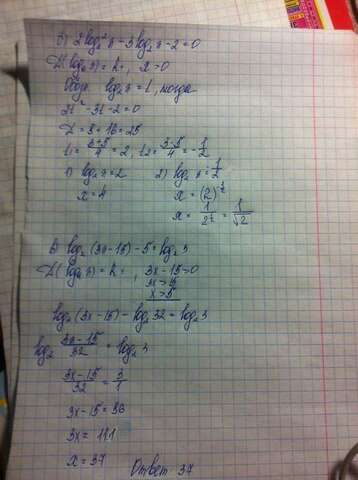 б) 2log₂²x - 3log₂x - 2 = 0
D(log₂x) = R₊, x>0
Обозн. log₂x = t, тогда
2t² - 3t - 2 = 0
D = 9 + 16 = 25
t₁ = (3+5)/4 = 2, t₂ = (3-5)/4 = -1/2
1) log₂x = 2 2) log₂x = -1/2
x = 4 x = (2)
x = 1/2^½ = 1/√2
в) log₂(3x-15) - 5 = log₂3
D(log₂x) = R₊, 3x-15>0
3x>15
x>5
log₂(3x-15) - log₂32 = log₂3
log₂ (3x-15)/32 = log₂3
(3x-15)/32 = 3/1
3x-15 = 96
3x = 111
x = 37 Ответ 37